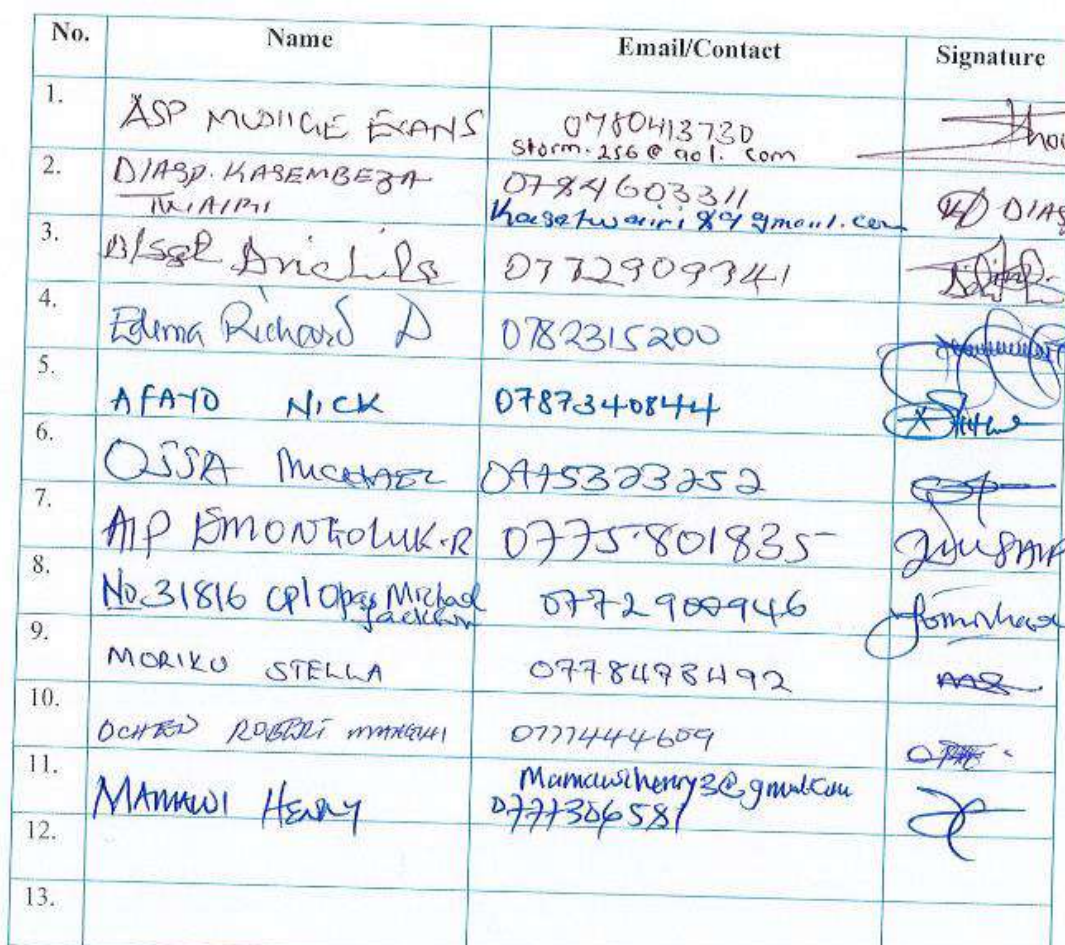 No. Name Email/Contact Signature
1. ASP MUDIIGIE EVANS 0780413730
storm.256@aol.com
2. D/ASP. KASEMBEZA 0784603311
TWIAIRI
3. D/Sgt 0772909341
4. Edema Richard D 0782315200
5. AFAYO NICK 0787340844
6. OSSA MICHAEL
7. AIP EMONGOLUK.R 0775801835
8. No.31816 cpl Opas Michael 0772900946
Jackson
9. MORIKU STELLA 0778493492
10. OCHEN ROBERT 0777444609
11. MAMAWI HENRY Mamawihenry3@gmail.com
0777306581
12.
13.